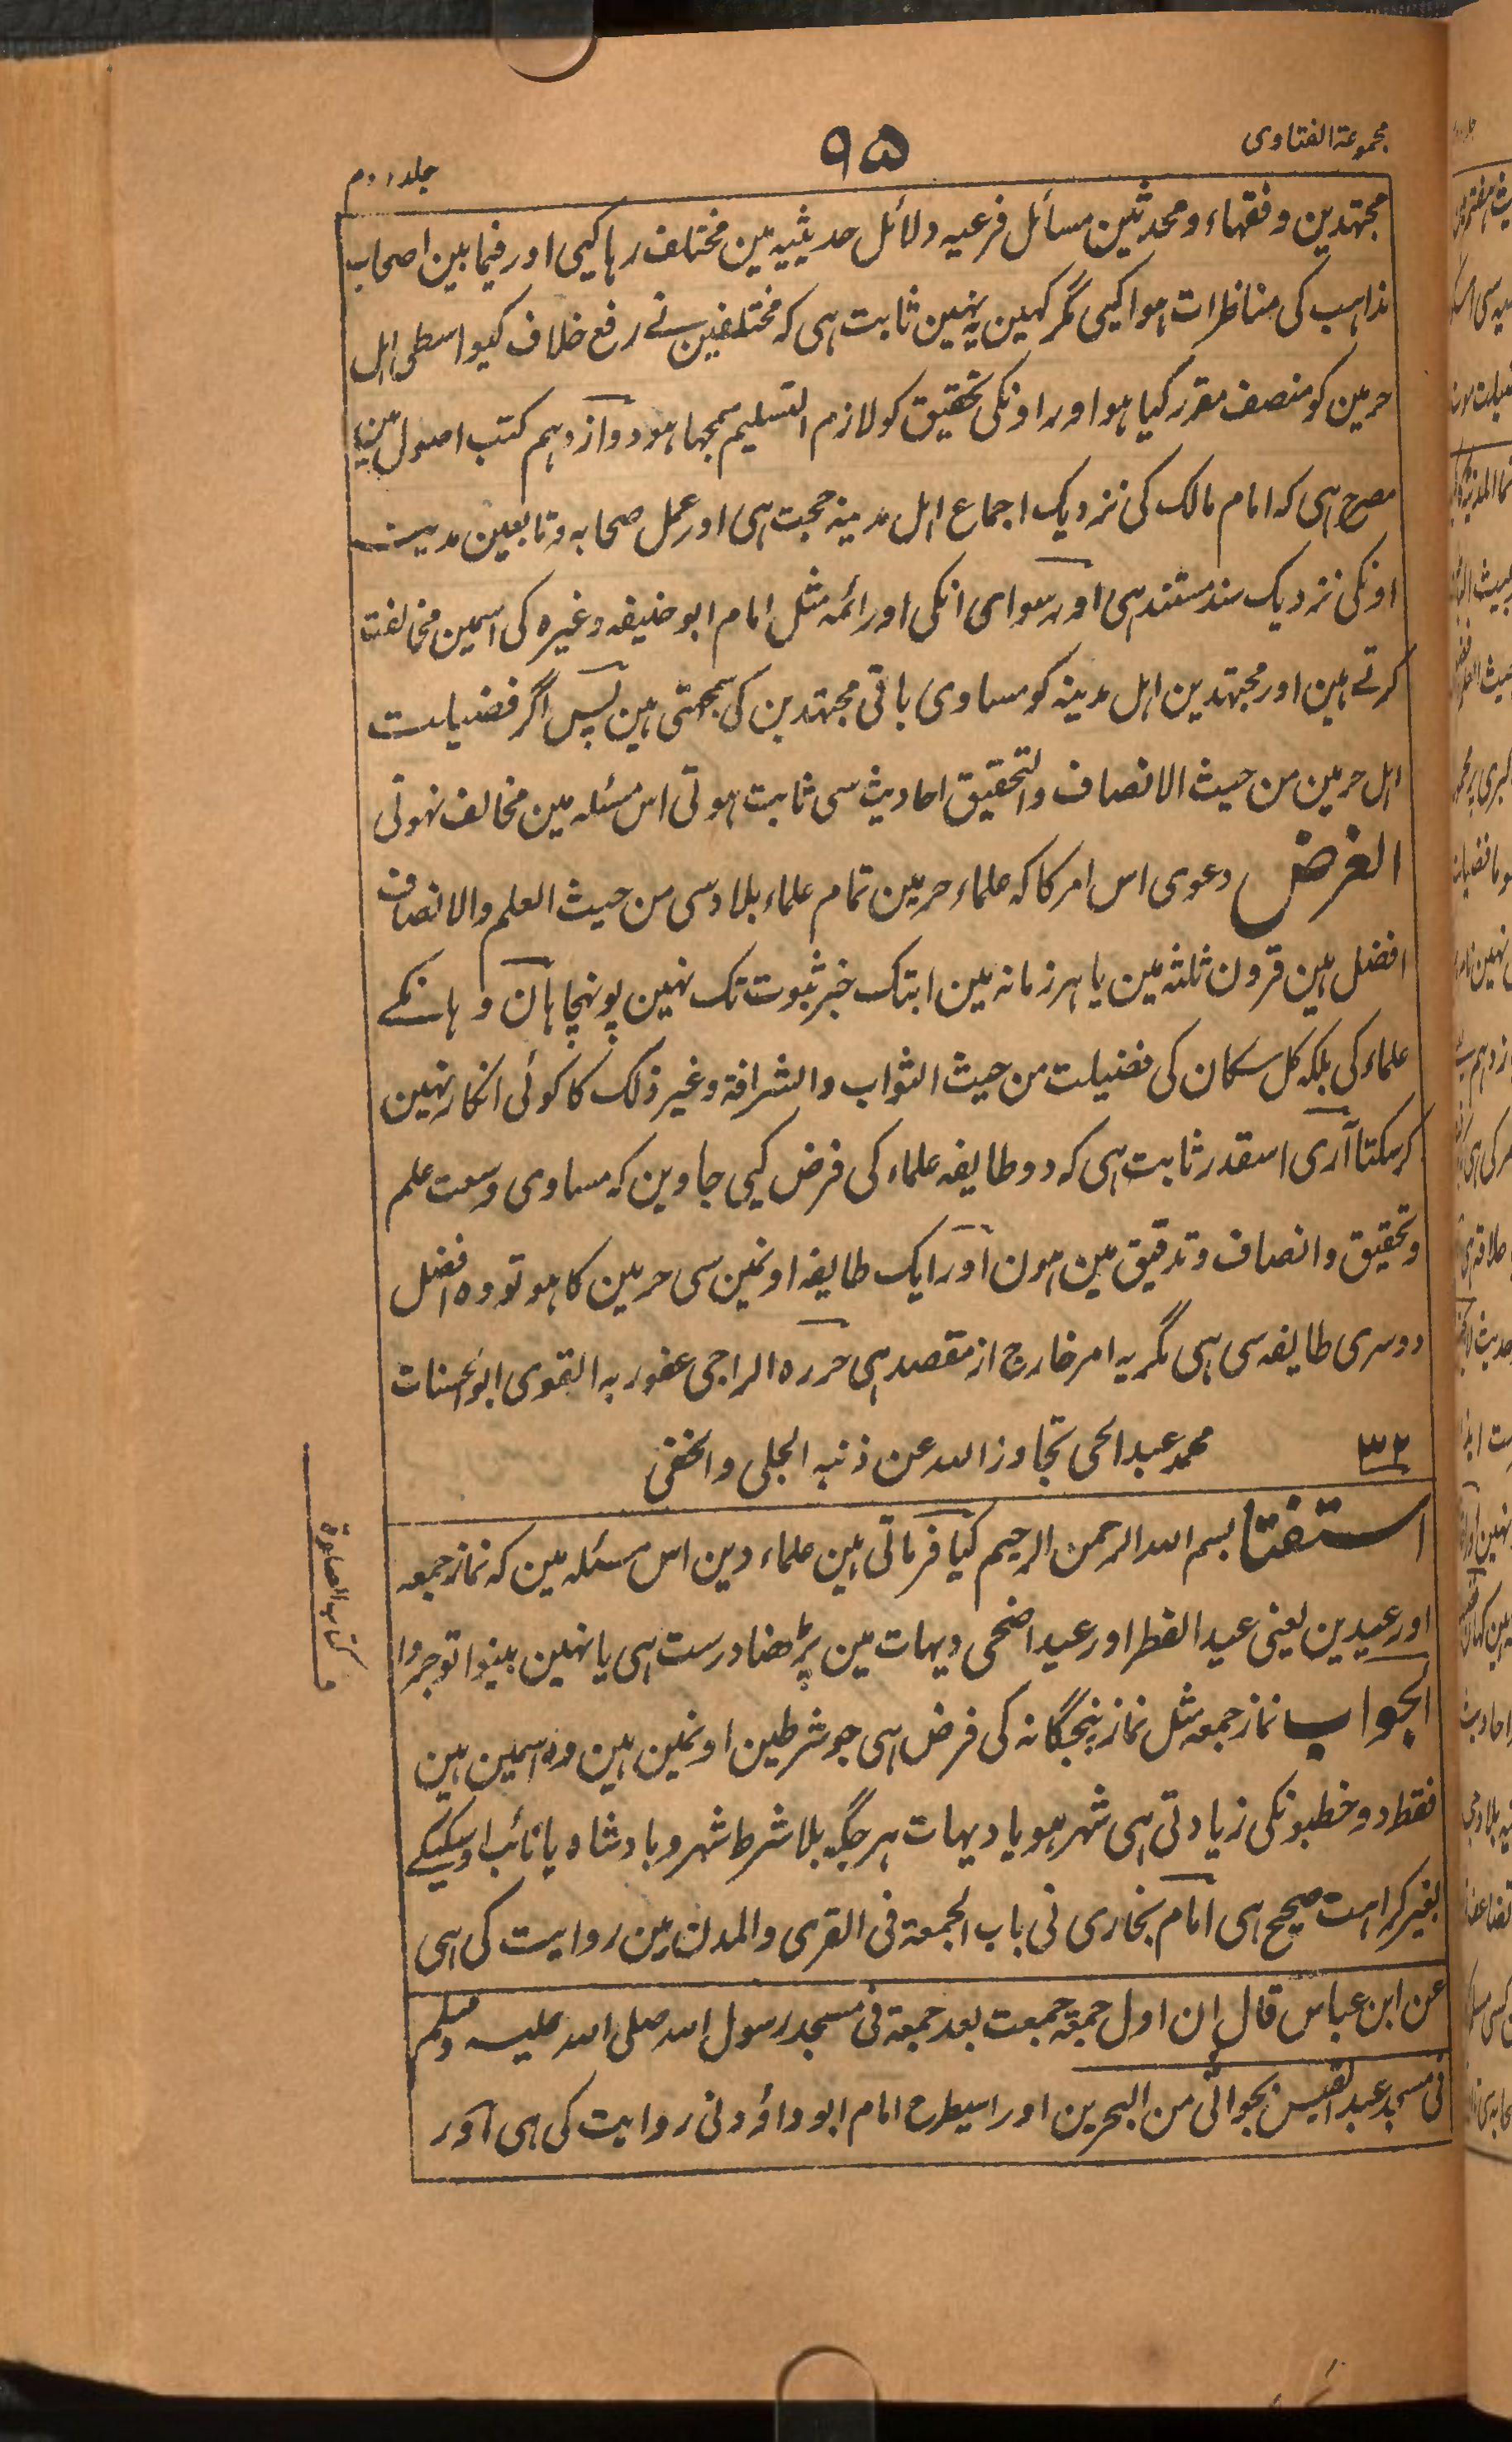 مجموعۃ الفتاوی
۹۵
جلد دوم
مجتہدین و فقہاء و محدثین مسائل فرعیہ دلائل حدیثیہ مین مختلف رہا کیی اور فیما بین اصحاب
مذاہب کی مناظرات ہوا کیی مگر کہین یہ نہین ثابت ہی کہ مختلفین نے رفع خلاف کیواسطی اہل
حرمین کو منصف مقرر کیا ہو اور اونکی تحقیق کو لازم التسلیم سمجھا ہو دوازدہم کتب اصول مین
مصرح ہی کہ امام مالک کی نزدیک اجماع اہل مدینہ حجت ہی اور عمل صحابہ و تابعین مدینہ
اونکی نزدیک سند مستند ہی اور سوای انکی اور ائمہ مثل امام ابو حنیفہ وغیرہ کی اسمین مخالفت
کرتے ہین اور مجتہدین اہل مدینہ کو مساوی باقی مجتہدین کی سمجھتی ہین پس اگر فضیلت
اہل حرمین من حیث الانصاف والتحقیق احادیث سی ثابت ہوتی اس مسئلہ مین مخالف نہوتی
الغرض دعوی اس امر کا کہ علماء حرمین تمام علماء بلاد سی من حیث العلم والانصاف
افضل ہین قرون ثلثہ مین یا ہر زمانہ مین ابتک خبر ثبوت تک نہین پونہچا ہان وہانکے
علماء کی بلکہ کل سکان کی فضیلت من حیث الثواب والشرافۃ وغیر ذلک کا کوئی انکار نہین
کرسکتا آری اسقدر ثابت ہی کہ دو طایفہ علماء کی فرض کیی جاوین کہ مساوی وسعت علم
وتحقیق وانصاف وتدقیق مین ہون اور ایک طایفہ اونمین سی حرمین کا ہو تو وہ افضل
دوسری طایفہ سی ہی مگر یہ امر خارج از مقصد ہی حررہ الراجی عفو ربہ القوی ابوالحسنات
محمد عبدالحی تجاوز اللہ عن ذنبہ الجلی والخفی
۳۲
استفتا بسم اللہ الرحمن الرحیم کیا فرماتی ہین علماء دین اس مسئلہ مین کہ نماز جمعہ
اور عیدین یعنی عید الفطر اور عید اضحی دیہات مین پڑھنا درست ہی یا نہین بینوا توجروا
کتاب الصلوۃ
الجواب نماز جمعہ مثل نماز پنجگانہ کی فرض ہی جو شرطین اونمین ہین وہ اسمین ہین
فقط دو خطبونکی زیادتی ہی شہر ہو یا دیہات ہر جگہ بلا شرط شہر و بادشاہ یا نائب اوسیکے
بغیر کراہت صحیح ہی امام بخاری نی باب الجمعۃ فی القری والمدن مین روایت کی ہی
عن ابن عباس قال ان اول جمعۃ جمعت بعد جمعۃ فی مسجد رسول اللہ صلی اللہ علیہ وسلم
فی مسجد عبد القیس بجواثی من البحرین اور اسیطرح امام ابو داؤد نی روایت کی ہی اور